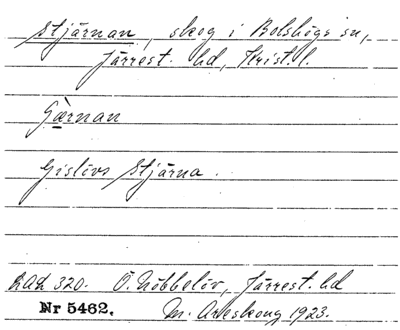 Stjärnan, skog i Bolshögs sn,
Järrest. hd, Krist. l.
Gæ̀rnan
Gislövs Stjärna.
RAÄ 320. Ö. Nöbbelöv, Järrest. hd
Nr 5462. M. Areskoug 1923.